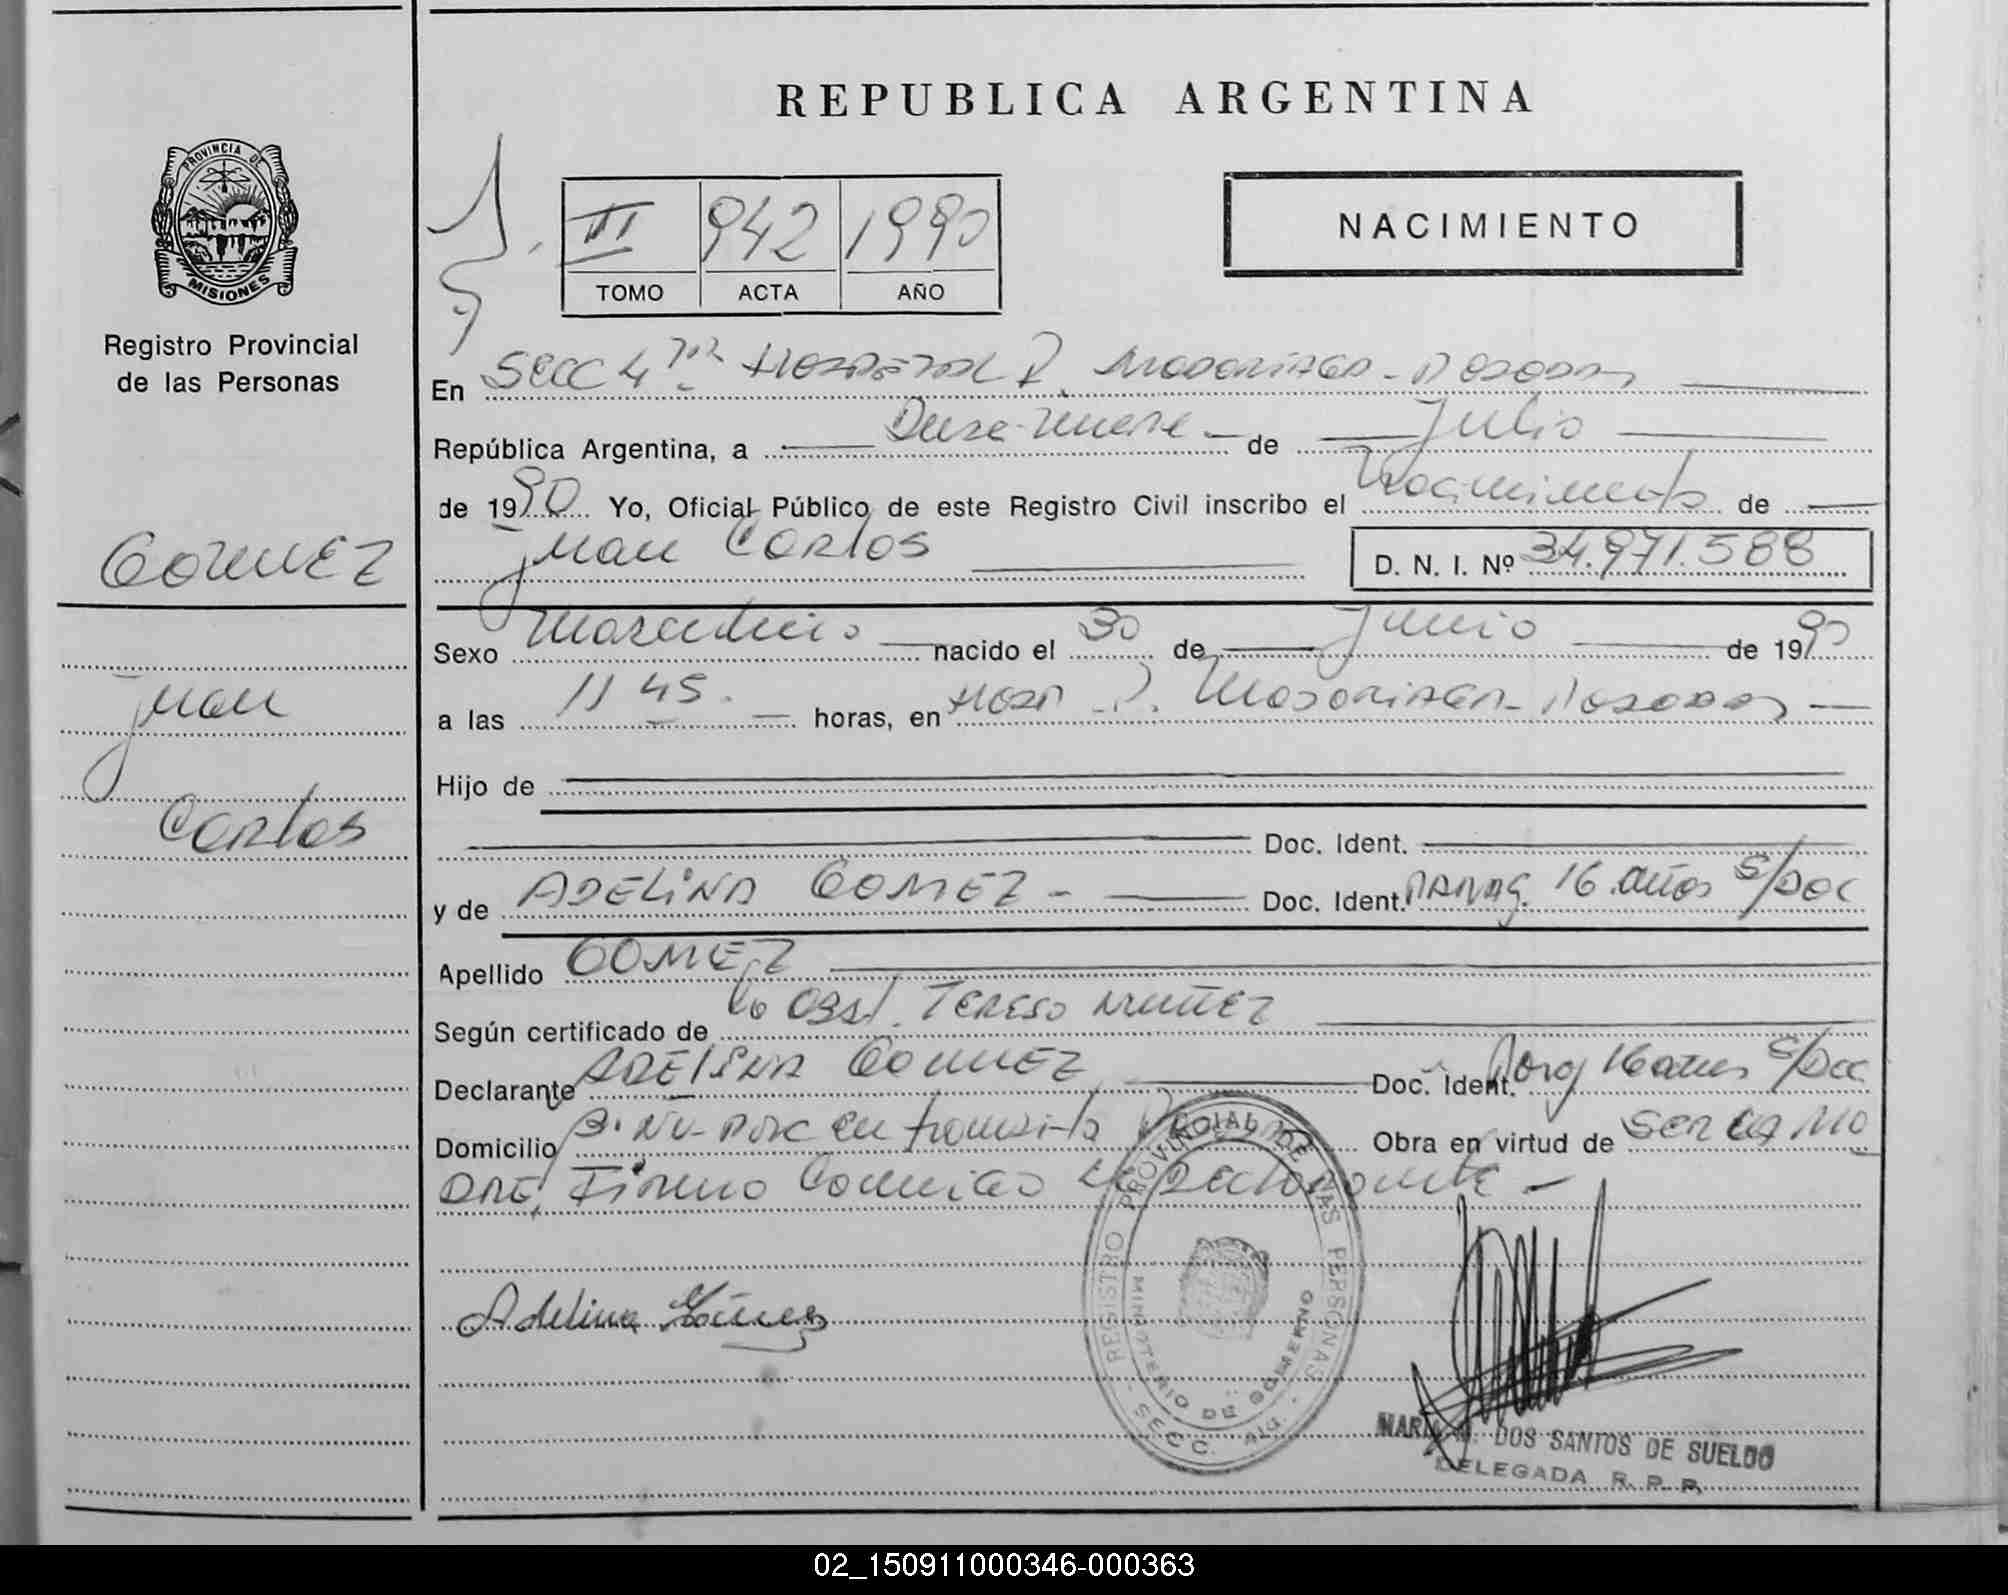 REPUBLICA ARGENTINA
PROVINCIA DE
MISIONES
Registro Provincial
de las Personas
III 942 1990
TOMO ACTA AÑO
NACIMIENTO
En SECC 4 Hospital R. Madariaga - Posadas
República Argentina, a Diez-nueve de Julio
de 1990 Yo, Oficial Público de este Registro Civil inscribo el Nacimiento de
Juan Carlos
D. N. I. Nº 34.971.588
GOMEZ
Juan
Carlos
Sexo Masculino nacido el 30 de Junio de 1990
a las 11 45 horas, en Hosp R. Madariaga - Posadas
Hijo de
Doc. Ident.
y de ADELINA GOMEZ - Doc. Ident. PARAG. 16 años S/DOC
Apellido GOMEZ
Según certificado de la Obst. TERESA NUÑEZ
Declarante ADELINA GOMEZ Doc. Ident. Parag 16 años S/Doc
Domicilio en transito Obra en virtud de SER LA MA
DRE, Firma Conmigo el Declarante -
Adelina Gómez
REGISTRO PROVINCIAL DE LAS PERSONAS
MINISTERIO DE GOBIERNO
SECC. 4ta.
MARIA DOS SANTOS DE SUELDO
DELEGADA R. P. P.
02_150911000346-000363